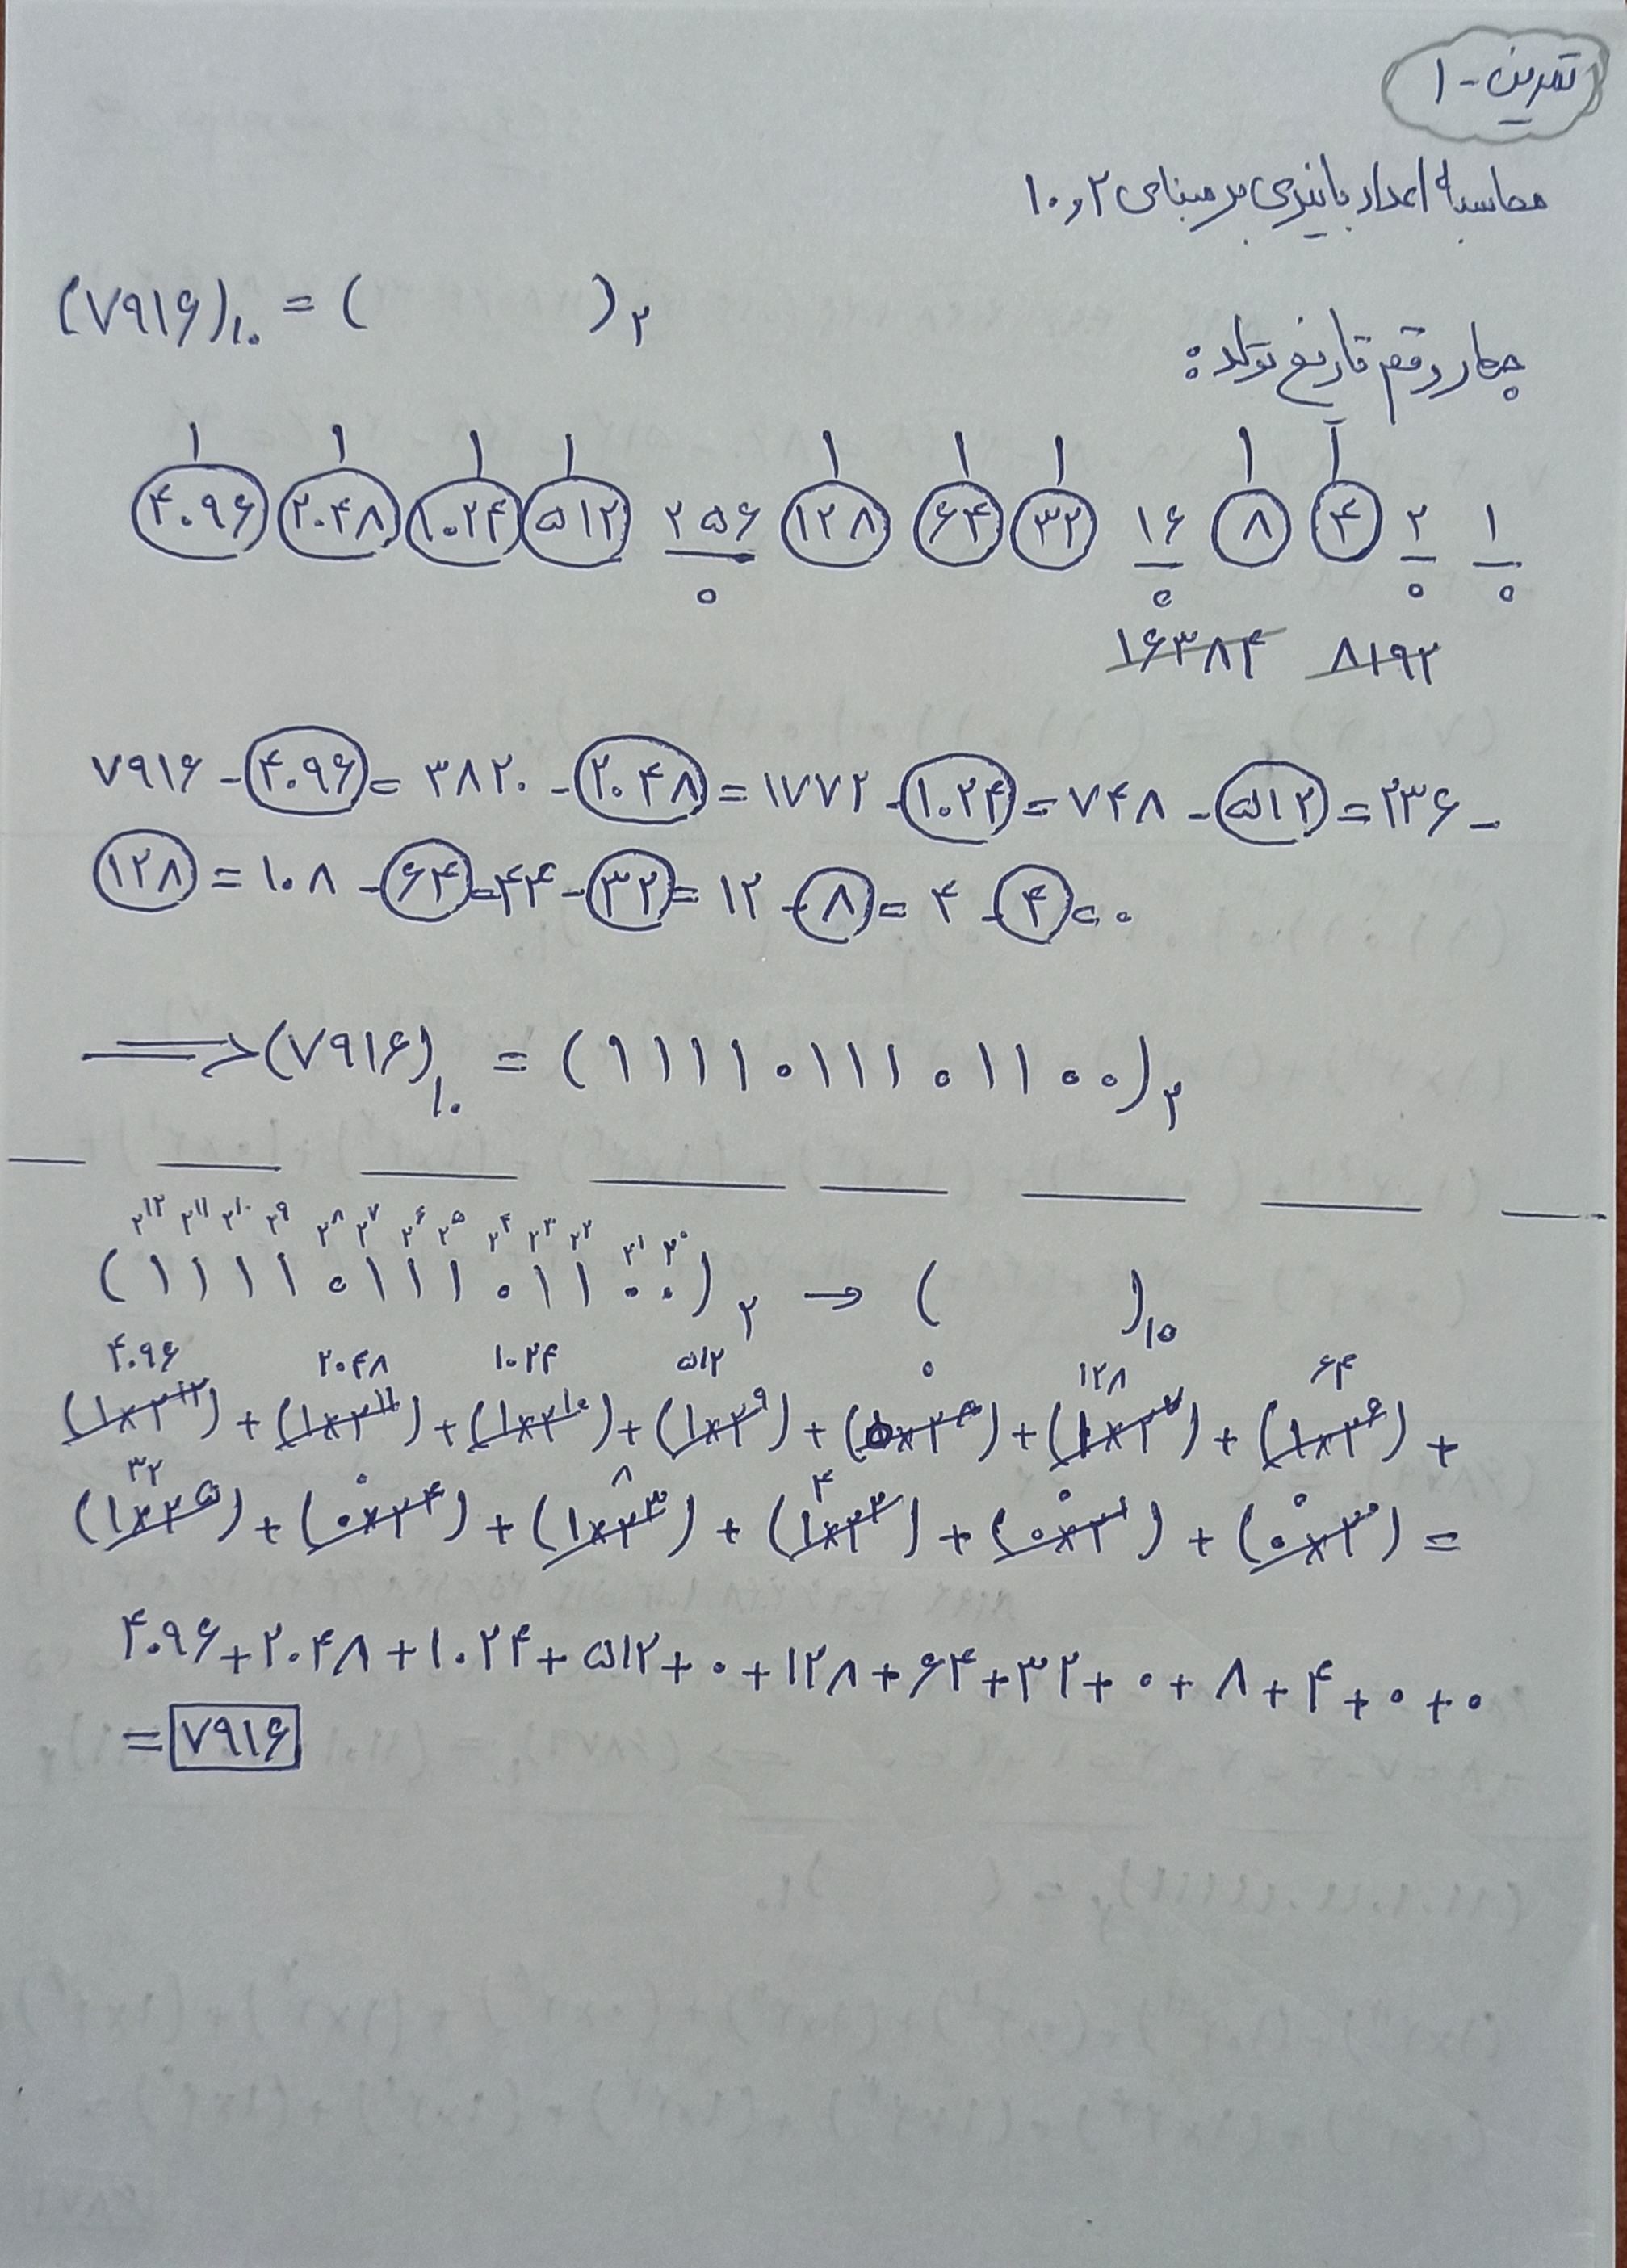 تمرین - ۱
محاسبه اعداد باینری بر مبنای ۲ و ۱۰
چهار رقم تاریخ تولد:
(۷۹۱۶)۱۰ = ( )۲
۱ ۱ ۱ ۱ ۱ ۱ ۱ ۱ ۱
۴۰۹۶ ۲۰۴۸ ۱۰۲۴ ۵۱۲ ۲۵۶ ۱۲۸ ۶۴ ۳۲ ۱۶ ۸ ۴ ۲ ۱
۰ ۰ ۰ ۰
۱۶۳۸۴ ۸۱۹۲
۷۹۱۶ - ۴۰۹۶ = ۳۸۲۰ - ۲۰۴۸ = ۱۷۷۲ - ۱۰۲۴ = ۷۴۸ - ۵۱۲ = ۲۳۶ -
۱۲۸ = ۱۰۸ - ۶۴ = ۴۴ - ۳۲ = ۱۲ - ۸ = ۴ - ۴ = ۰
⟹ (۷۹۱۶)۱۰ = (۱۱۱۱۰۱۱۱۰۱۱۰۰)۲
۲^۱۲ ۲^۱۱ ۲^۱۰ ۲^۹ ۲^۸ ۲^۷ ۲^۶ ۲^۵ ۲^۴ ۲^۳ ۲^۲ ۲^۱ ۲^۰
(۱۱۱۱۰۱۱۱۰۱۱۰۰)۲ → ( )۱۰
۴۰۹۶ ۲۰۴۸ ۱۰۲۴ ۵۱۲ ۰ ۱۲۸ ۶۴
(۱×۲^۱۲) + (۱×۲^۱۱) + (۱×۲^۱۰) + (۱×۲^۹) + (۰×۲^۸) + (۱×۲^۷) + (۱×۲^۶) +
۳۲ ۰ ۸ ۴ ۰ ۰
(۱×۲^۵) + (۰×۲^۴) + (۱×۲^۳) + (۱×۲^۲) + (۰×۲^۱) + (۰×۲^۰) =
۴۰۹۶ + ۲۰۴۸ + ۱۰۲۴ + ۵۱۲ + ۰ + ۱۲۸ + ۶۴ + ۳۲ + ۰ + ۸ + ۴ + ۰ + ۰
= ۷۹۱۶